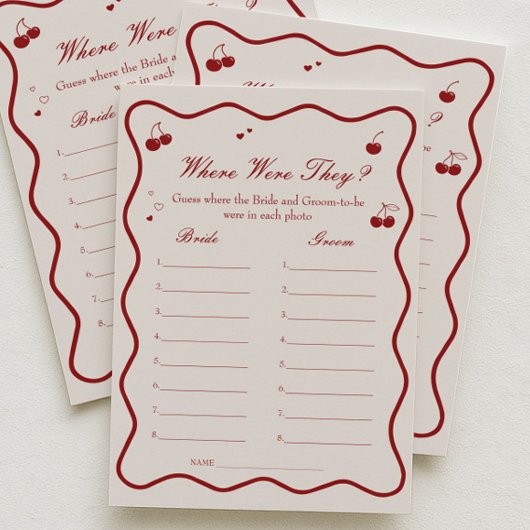 Where Were They?
Guess where the Bride and Groom-to-be
were in each photo
Bride Groom
1. 1.
2. 2.
3. 3.
4. 4.
5. 5.
6. 6.
7. 7.
8. 8.
NAME
Where Were
Guess where the Bride
were in each
Bride
1.
2.
3.
4.
8.
?